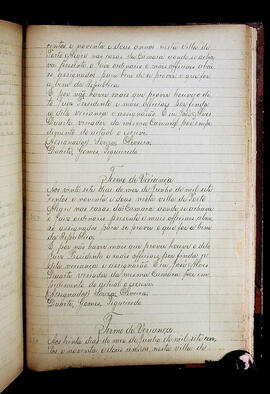 sentos e noventa e dous annos nesta Villa de
Porto Alegre nas casas da Camara onde se acha-
va presente o Juiz ordinario e mais officiaes abai-
xo assignados para bem de se prover o que for a
a bem da Republica.
E por não haver mais que prover houve o di-
to Juiz Presidente e mais officiaes por finda
a dita veriança e assignarão. E eu José Alves
Duarte vereador da mesma Camara por impe-
dimento do actual o escrevi.
(Assignados) Souza, Oliveira,
Duarte, Gomes, Siqueira
Termo de Veriança
Aos vinte dias do mez de Junho de mil sete
centos e noventa e dous nesta villa de Porto
Alegre nas casas da Camara onde se achava
o Juiz ordinario presente e mais officiaes abai-
xo assignados para se prover o que fosse a bem
da Republica.
E por não haver mais que prover houve o dito
Juiz Presidente e mais officiaes por finda a
dita veriança e assignarão. E eu José Alves
Duarte vereador da mesma Camara por im-
pedimento do actual o escrevi.
(Assignados) Souza, Oliveira,
Duarte, Gomes, Siqueira
Termo de Veriança
Aos trinta dias do mez de Junho de mil sete cen-
tos e noventa e dous annos, nesta villa de